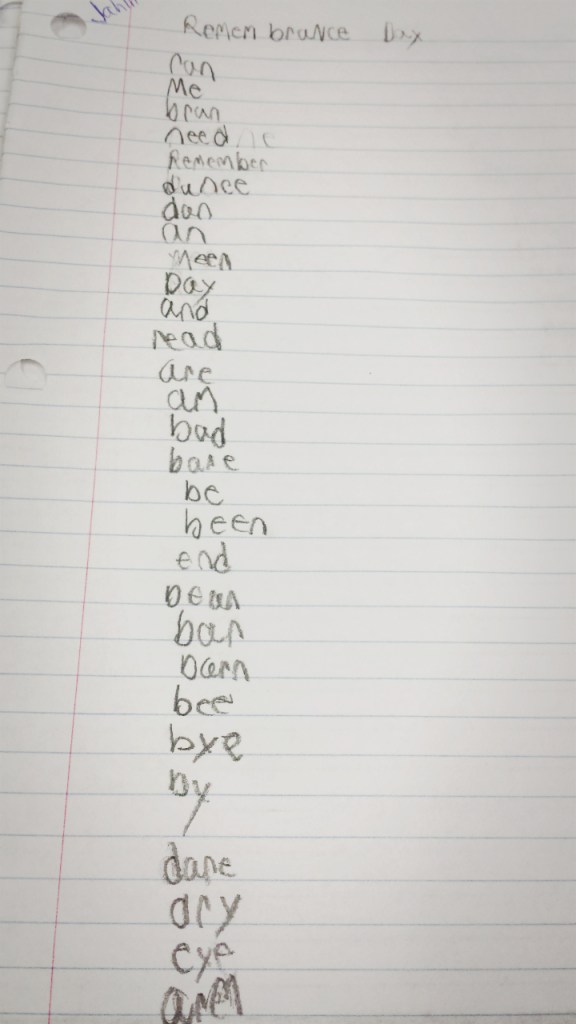 Remembrance Day
ran
Me
bran
need
Remember
dance
dan
an
Meen
Day
and
read
are
am
bad
bare
be
been
end
Dean
ban
Darn
bee
bye
by
dare
dry
eye